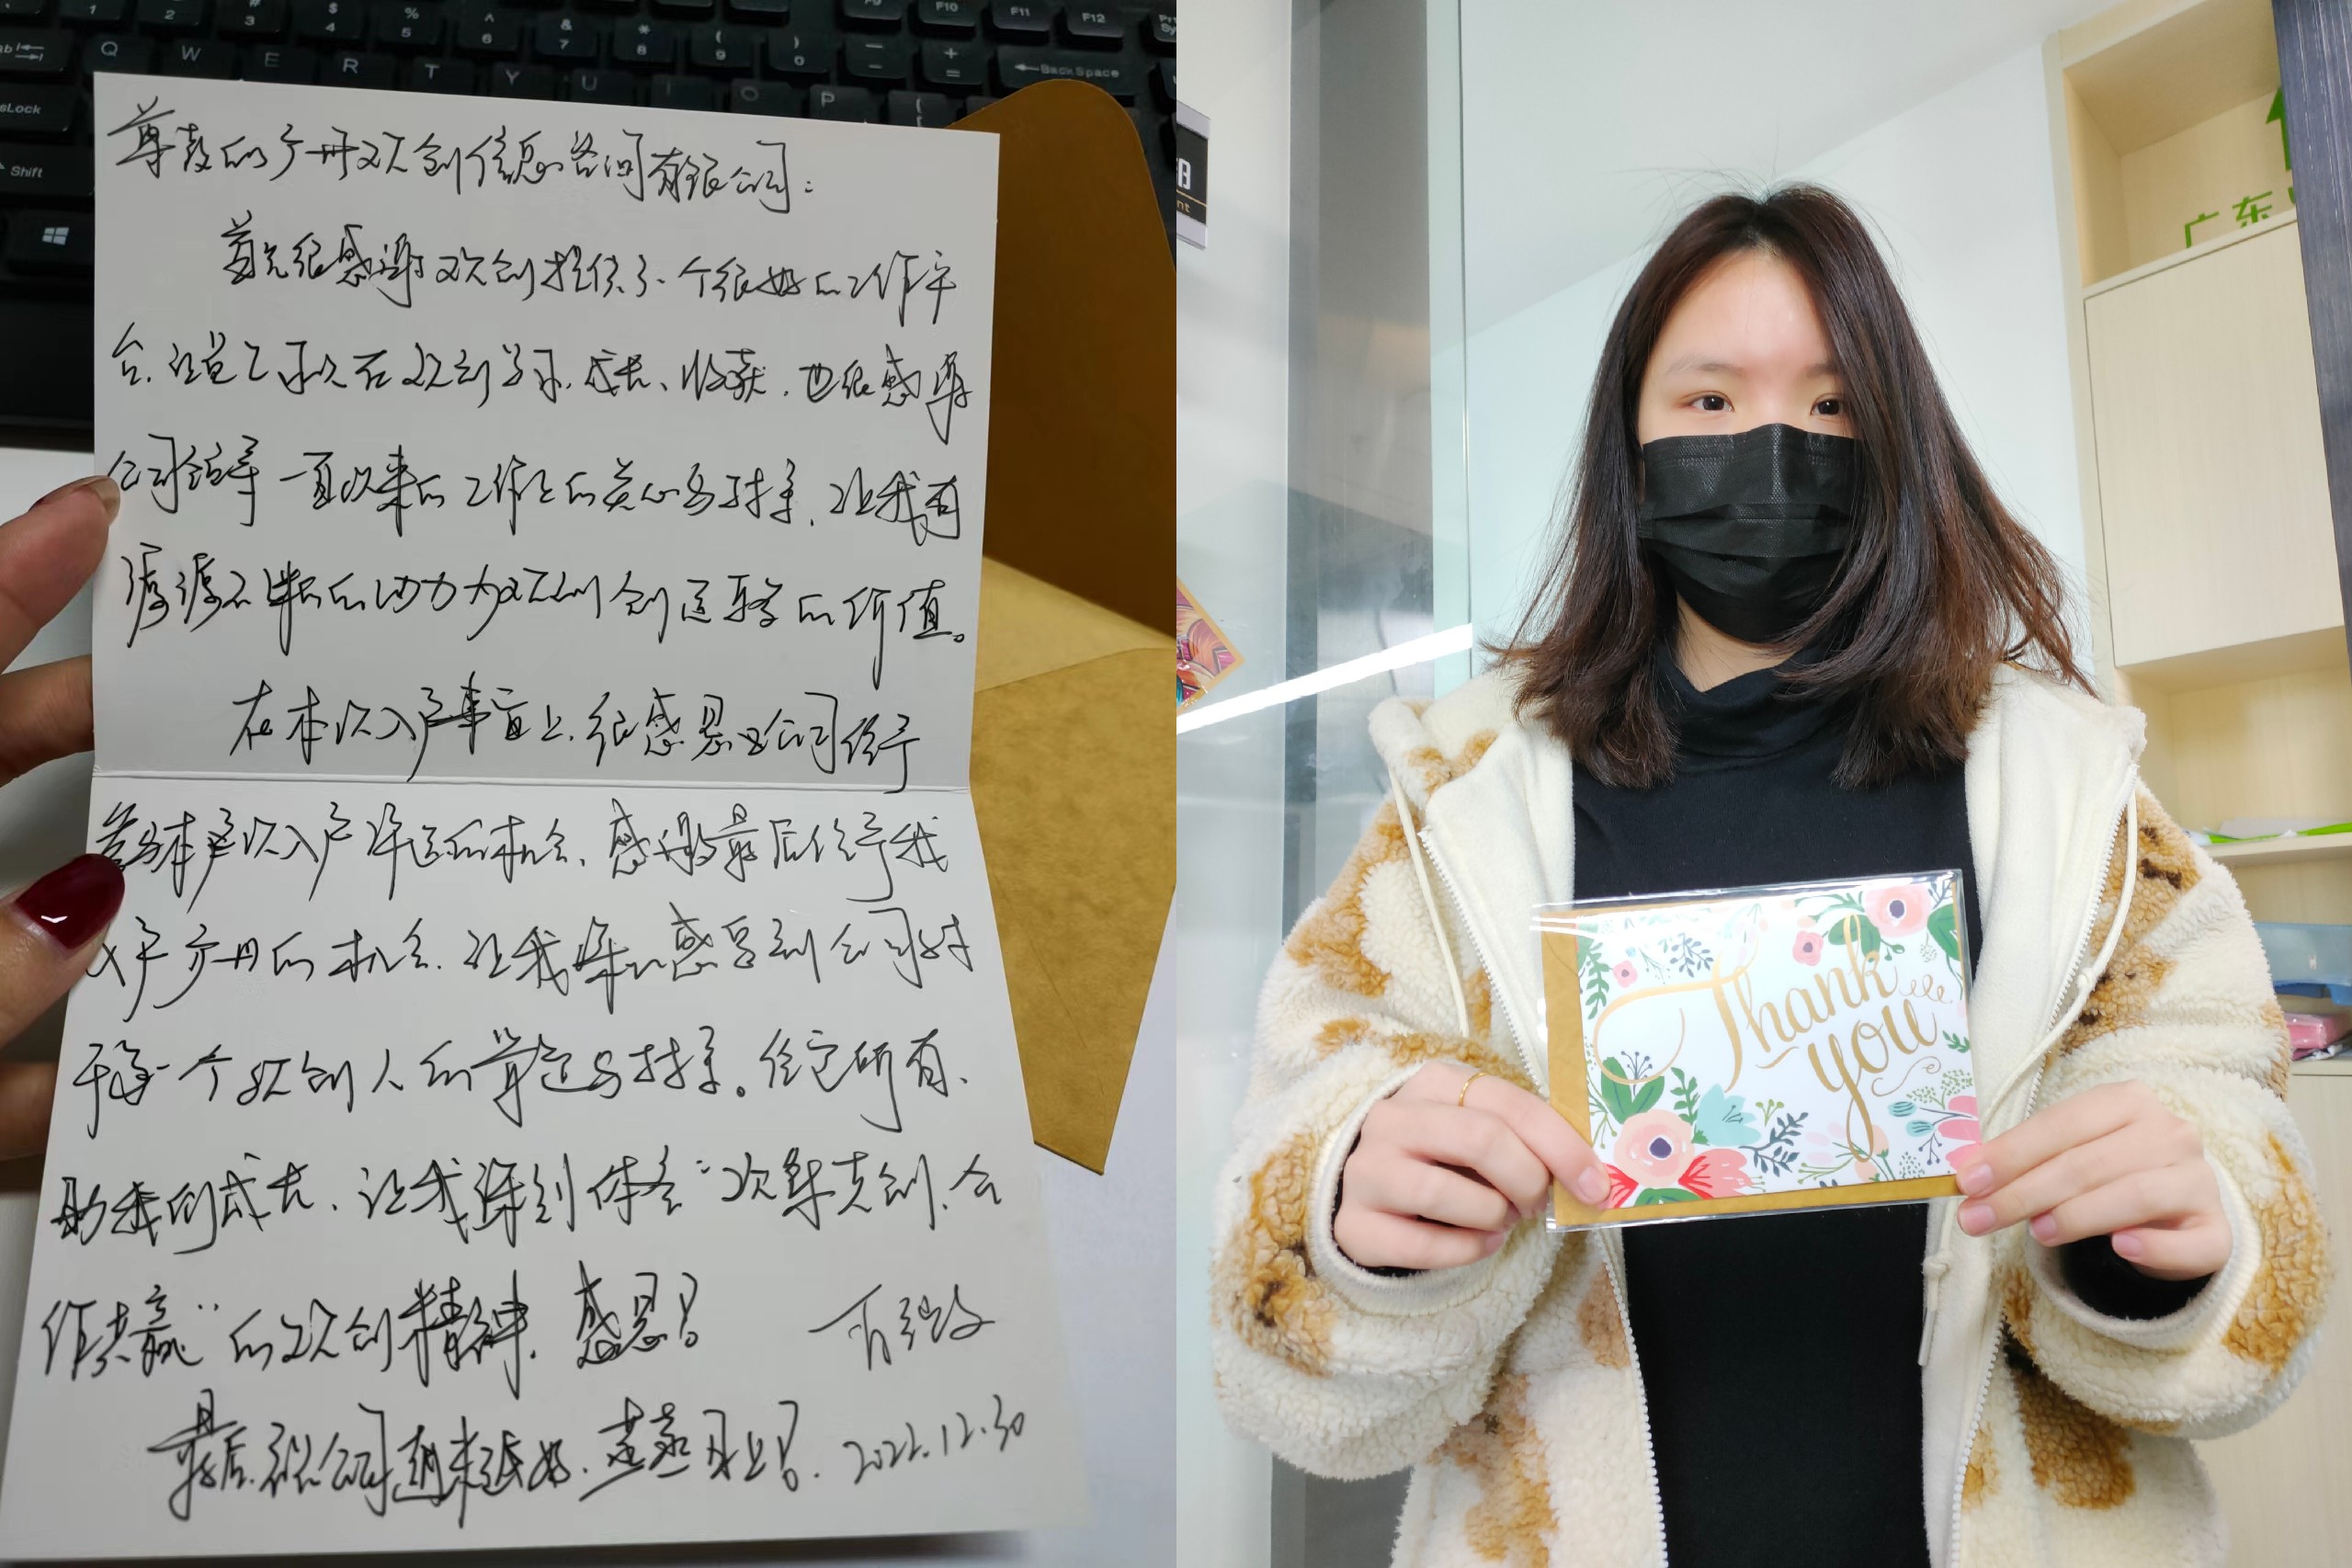 尊敬的广州欢创信息咨询有限公司:
首先很感谢欢创提供了一个很好的工作平
台,让自己可以在欢创学习、成长、收获,也很感谢
公司领导一直以来的工作上的关心与支持,让我有
源源不断的动力为欢创创造更多的价值。
在本次入户事宜上,很感恩公司给予
参与本次入户评选的机会,感谢最后给予我
入户广州的机会,让我深深感受到公司对
于每一个欢创人的肯定与支持。给它所有、
助我们成长,让我深刻体会“欢聚共创,合
作共赢”的欢创精神,感恩!
最后,祝公司越来越好,蒸蒸日上! 2022.12.30
Thank
you
广东
Q W E R T Y U I O P
F10 F11 F12
BackSpace
Shift